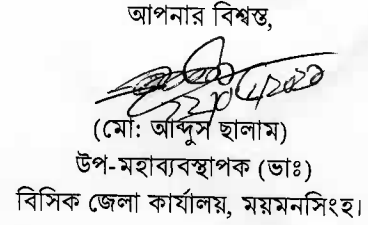 আপনার বিশ্বস্ত,
(মো: আব্দুস ছালাম)
উপ-মহাব্যবস্থাপক (ভাঃ)
বিসিক জেলা কার্যালয়, ময়মনসিংহ।